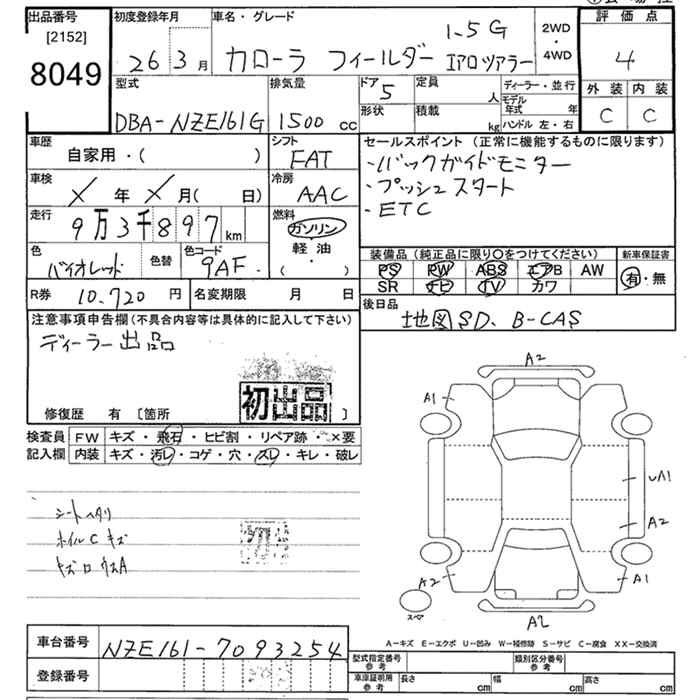 出品番号
[2152]
8049
初度登録年月
26 3月
車名・グレード
カローラ フィールダー 1.5G エアロツアラー
2WD
・
4WD
評価点
4
外装 内装
C C
型式
DBA-NZE161G
排気量
1500 cc
ドア 5
形状
定員 人
積載 kg
ディーラー・並行
モデル年式 年
ハンドル 左・右
車歴
自家用・( )
シフト
FAT
車検
X年X月( 日)
冷房
AAC
走行
9万3千897km
燃料
ガソリン
軽・油
・( )
色
バイオレッド
色替
色コード
9AF
R券 10,720 円
名変期限 月 日
セールスポイント(正常に機能するものに限ります)
・バックガイドモニター
・プッシュスタート
・ETC
装備品(純正品に限り○をつけてください)
新車保証書
PS PW ABS エアB AW
SR ナビ TV カワ
有・無
後日品
地図SD、B-CAS
注意事項申告欄(不具合内容等は具体的に記入して下さい)
ディーラー出品
初出品
修復歴 有 [箇所 ]
検査員
記入欄
FW キズ・飛石・ヒビ割・リペア跡・×要
内装 キズ・汚レ・コゲ・穴・スレ・キレ・破レ
シートヘタリ
ホイルCキズ
初
A2
A1
UA1
A2
A2
A1
A2
スペア
A-キズ E-エクボ U-凹み W-補修跡 S-サビ C-腐食 XX-交換済
車台番号
NZE161-7093254
登録番号
型式指定番号
参考
類別区分番号
参考
車庫証明用
参考
長さ cm
幅 cm
高さ cm